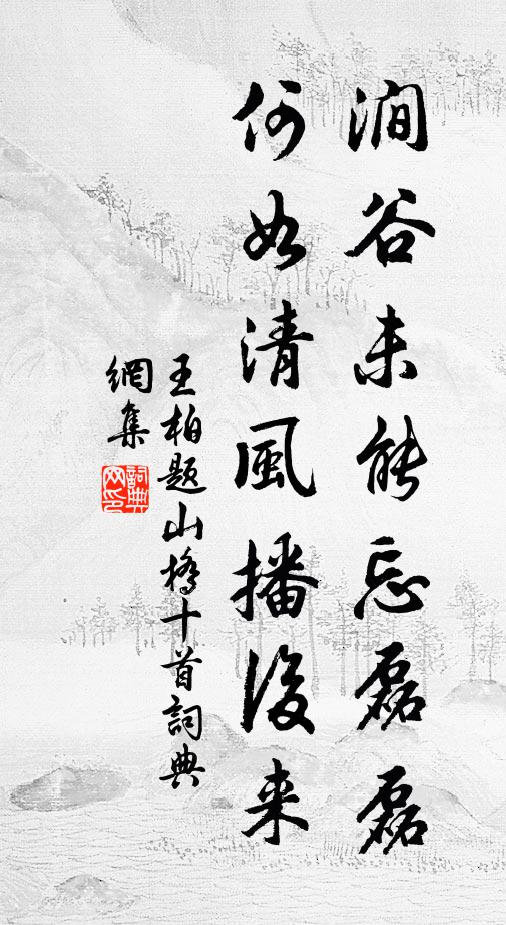 澗谷未能忘磊磊
何如清風播後来
王柏题山橋十首詞典
網集
詞典